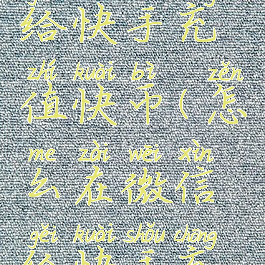 给快手充
zhí kuài bì zěn
值快币(怎
me zài wēi xìn
么在微信
gěi kuài shǒu chōng
给快手充